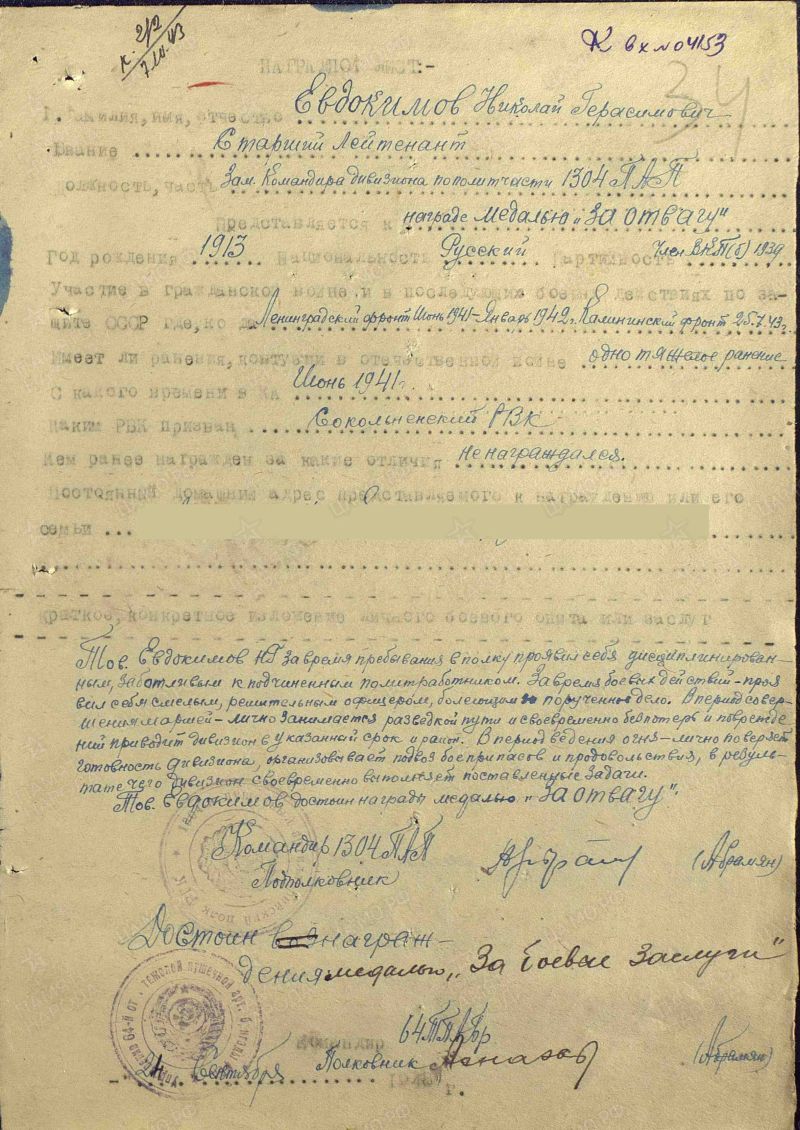 К вх № 04153
34
НАГРАДНОЙ ЛИСТ:-
1. Фамилия, имя, отчество Евдокимов Николай Герасимович
Звание Старший Лейтенант
Должность, часть Зам. Командира дивизиона по политчасти 1304 ПАП
Представляется к награде медалью „За отвагу"
Год рождения 1913 Национальность Русский Партийность Член ВКП(б) 1939
Участие в гражданской войне и в последующих боевых действиях по за-
щите СССР где, когда Ленинградский фронт Июнь 1941-Январь 1942 г. Калининский фронт 25.7.43 г.
Имеет ли ранения, контузии в отечественной войне одно тяжелое ранение
С какого времени в КА Июнь 1941 г.
Каким РВК призван Сокольненский РВК
Кем ранее награжден за какие отличия не награждался.
Постоянный домашний адрес представляемого к награждению или его
семьи ...
Краткое, конкретное изложение личного боевого опыта или заслуг
Тов. Евдокимов НГ за время пребывания в полку проявил себя дисциплинирован-
ным, заботливым к подчиненным политработником. За время боевых действий - проя
вил себя смелым, решительным офицером, болеющим за порученное дело. В период совер-
шения маршей - лично занимается разведкой пути и своевременно без потерь и поврежде
ний приводит дивизион в указанный срок и район. В период ведения огня - лично поверяет
готовность дивизиона, организовывает подвоз боеприпасов и продовольствия, в резуль-
тате чего дивизион своевременно выполняет поставленные задачи.
Тов. Евдокимов достоин награды медалью „За отвагу".
Командир 1304 ПАП
Подполковник (Абрамян)
Достоин награж-
дения медалью „За боевые заслуги"
Командир 64 ТПАБр
Полковник (Абрамян)
24 Сентября г.